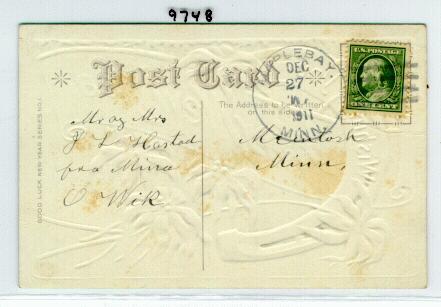 9748
GOOD LUCK NEW YEAR SERIES NO. 1
Post Card
The Address to be written
on this side
DEC
27
1911
MINN.
U.S. POSTAGE
ONE CENT
Mr og Mrs
P L Hostad
fra Mina
O Wik
McIntosh
Minn,